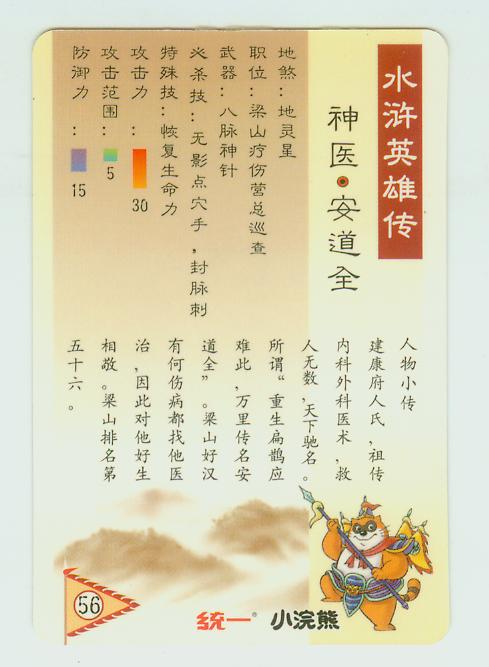 水浒英雄传
神医·安道全
地煞：地灵星
职位：梁山疗伤营总巡查
武器：八脉神针
必杀技：无影点穴手，封脉刺
特殊技：恢复生命力
攻击力：30
攻击范围：5
防御力：15
人物小传
建康府人氏，祖传
内科外科医术，救
人无数，天下驰名。
所谓“重生扁鹊应
难此，万里传名安
道全”。梁山好汉
有何伤病都找他医
治，因此对他好生
相敬。梁山排名第
五十六。
56
统一® 小浣熊